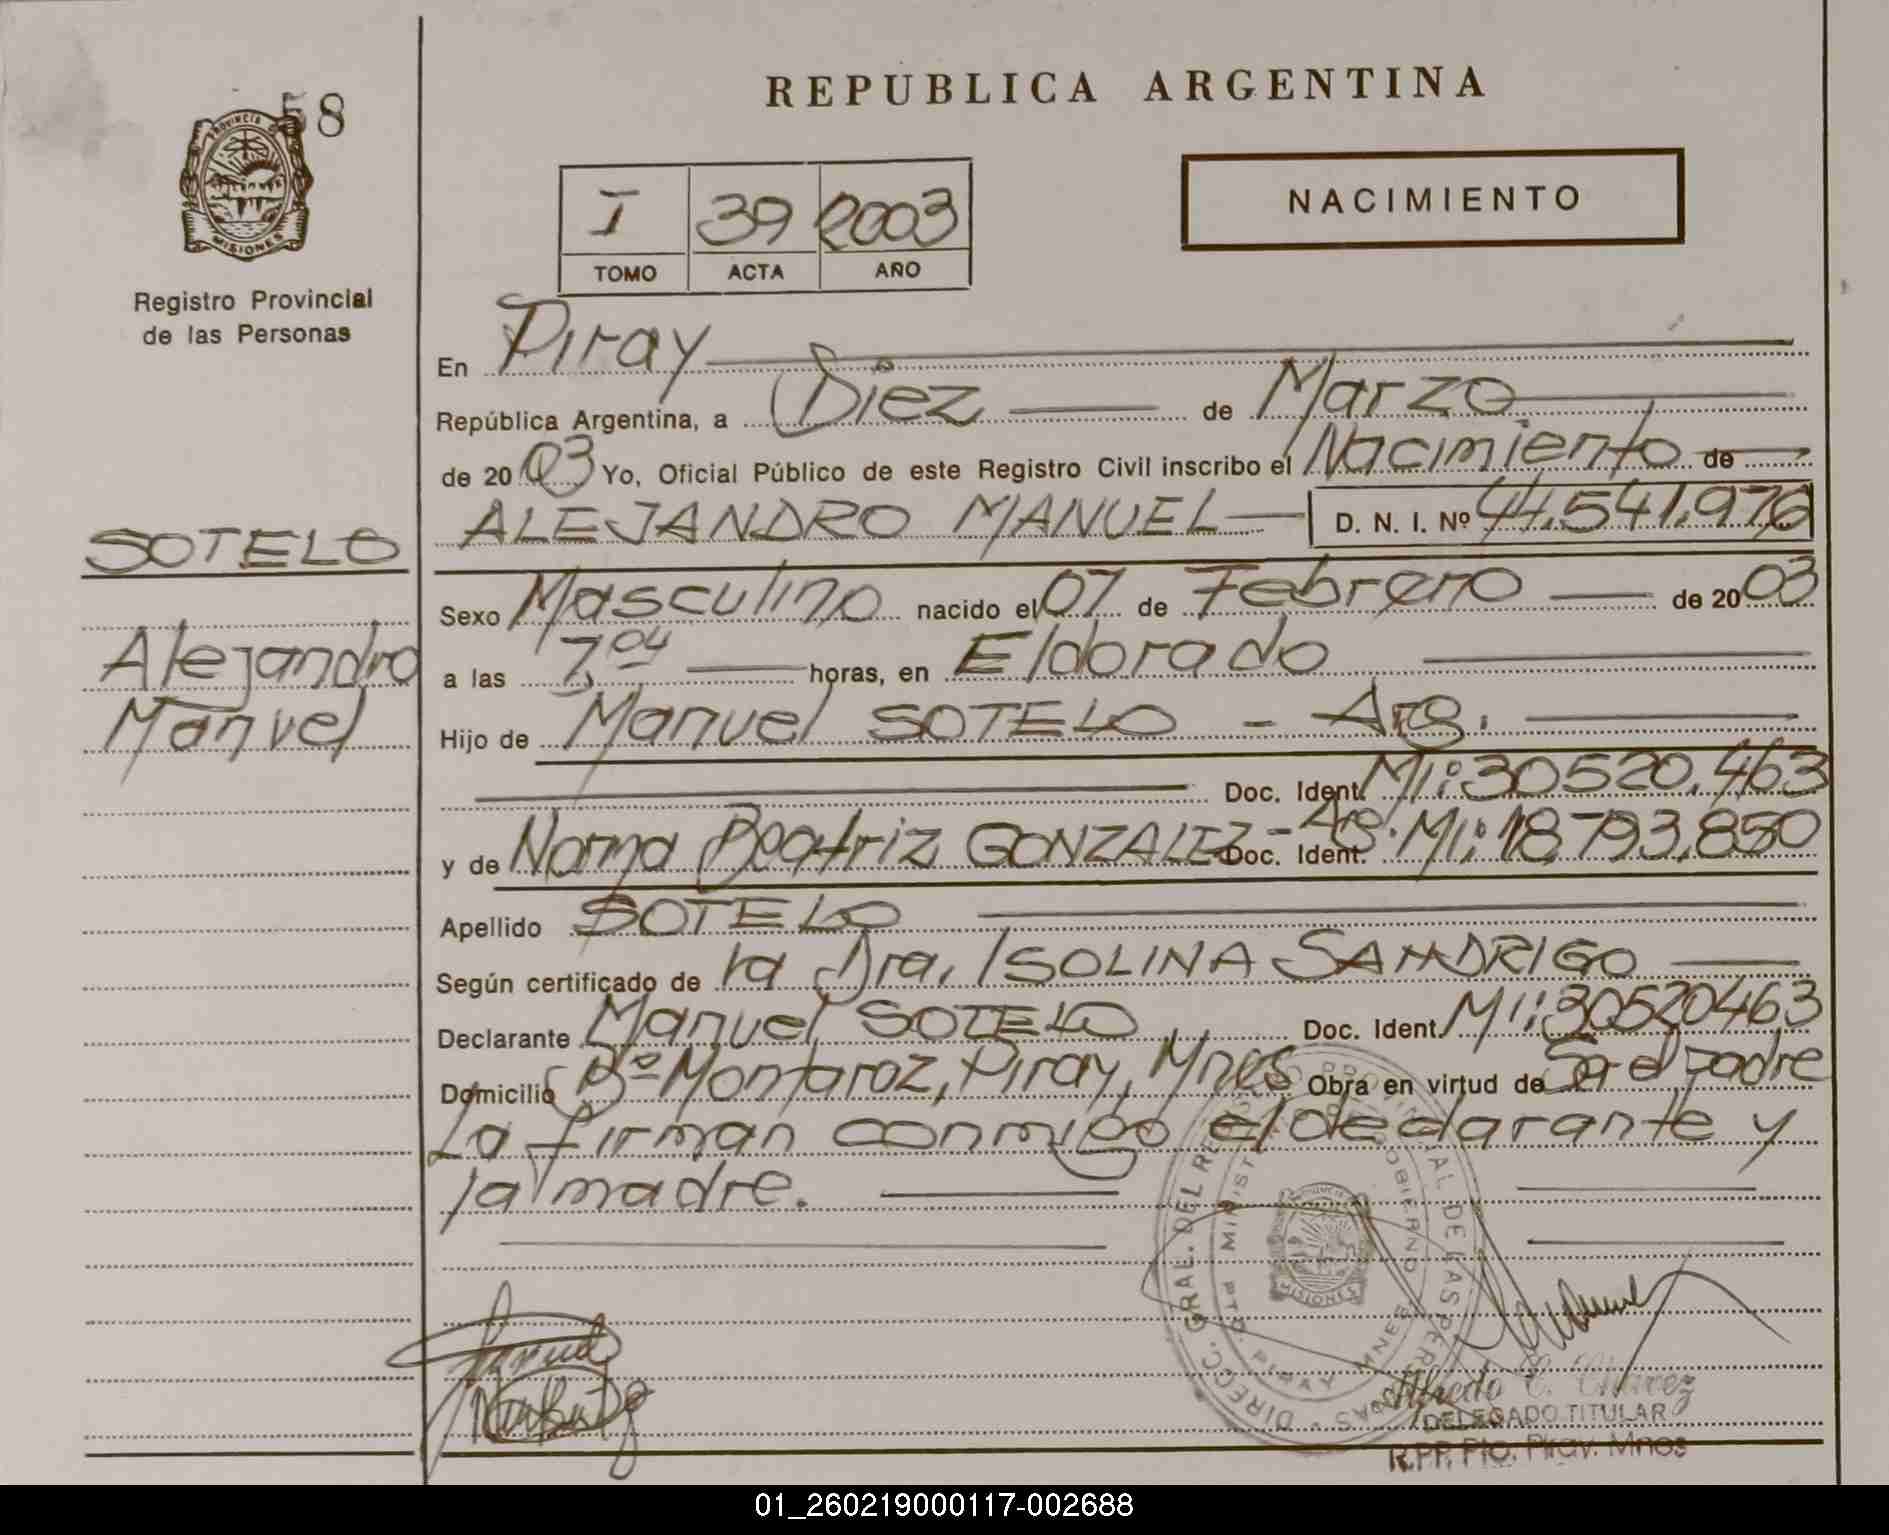 REPUBLICA ARGENTINA
58
PROVINCIA DE
MISIONES
Registro Provincial
de las Personas
I 39 2003
TOMO ACTA AÑO
NACIMIENTO
En Piray
República Argentina, a Diez de Marzo
de 2003 Yo, Oficial Público de este Registro Civil inscribo el Nacimiento de
SOTELO
ALEJANDRO MANUEL D. N. I. Nº 44.541.976
Alejandro
Manuel
Sexo Masculino nacido el 07 de Febrero de 2003
a las 7,04 horas, en Eldorado
Hijo de Manuel SOTELO - Arg.
Doc. Ident. MI: 30520.463
y de Norma Beatriz GONZALEZ - Arg. Doc. Ident. MI: 18.793.850
Apellido SOTELO
Según certificado de la Dra. ISOLINA SANDRIGO
Declarante Manuel SOTELO Doc. Ident. MI: 30520463
Domicilio Bº Montaroz, Piray, Mnes Obra en virtud de Ser el padre
La firman conmigo el declarante y
la madre.
DIRECC. GRAL. DEL REGISTRO PROVINCIAL DE LAS PERSONAS
PTO. PIRAY MNES
MISIONES
Alfredo C. Chavez
DELEGADO TITULAR
R.P.P. Pto. Piray. Mnes
01_260219000117-002688